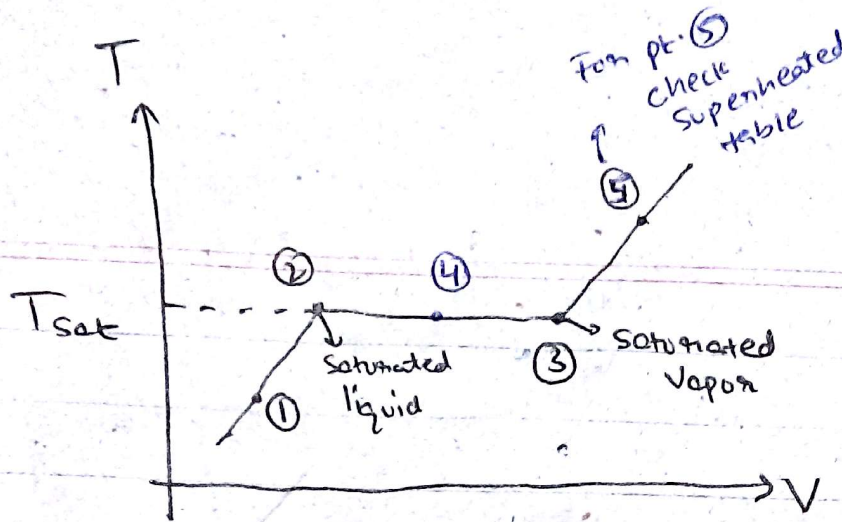 T
For pt. ⑤
check
superheated
table
⑤
② ④
Tsat
saturated
liquid
③
saturated
vapor
①
V